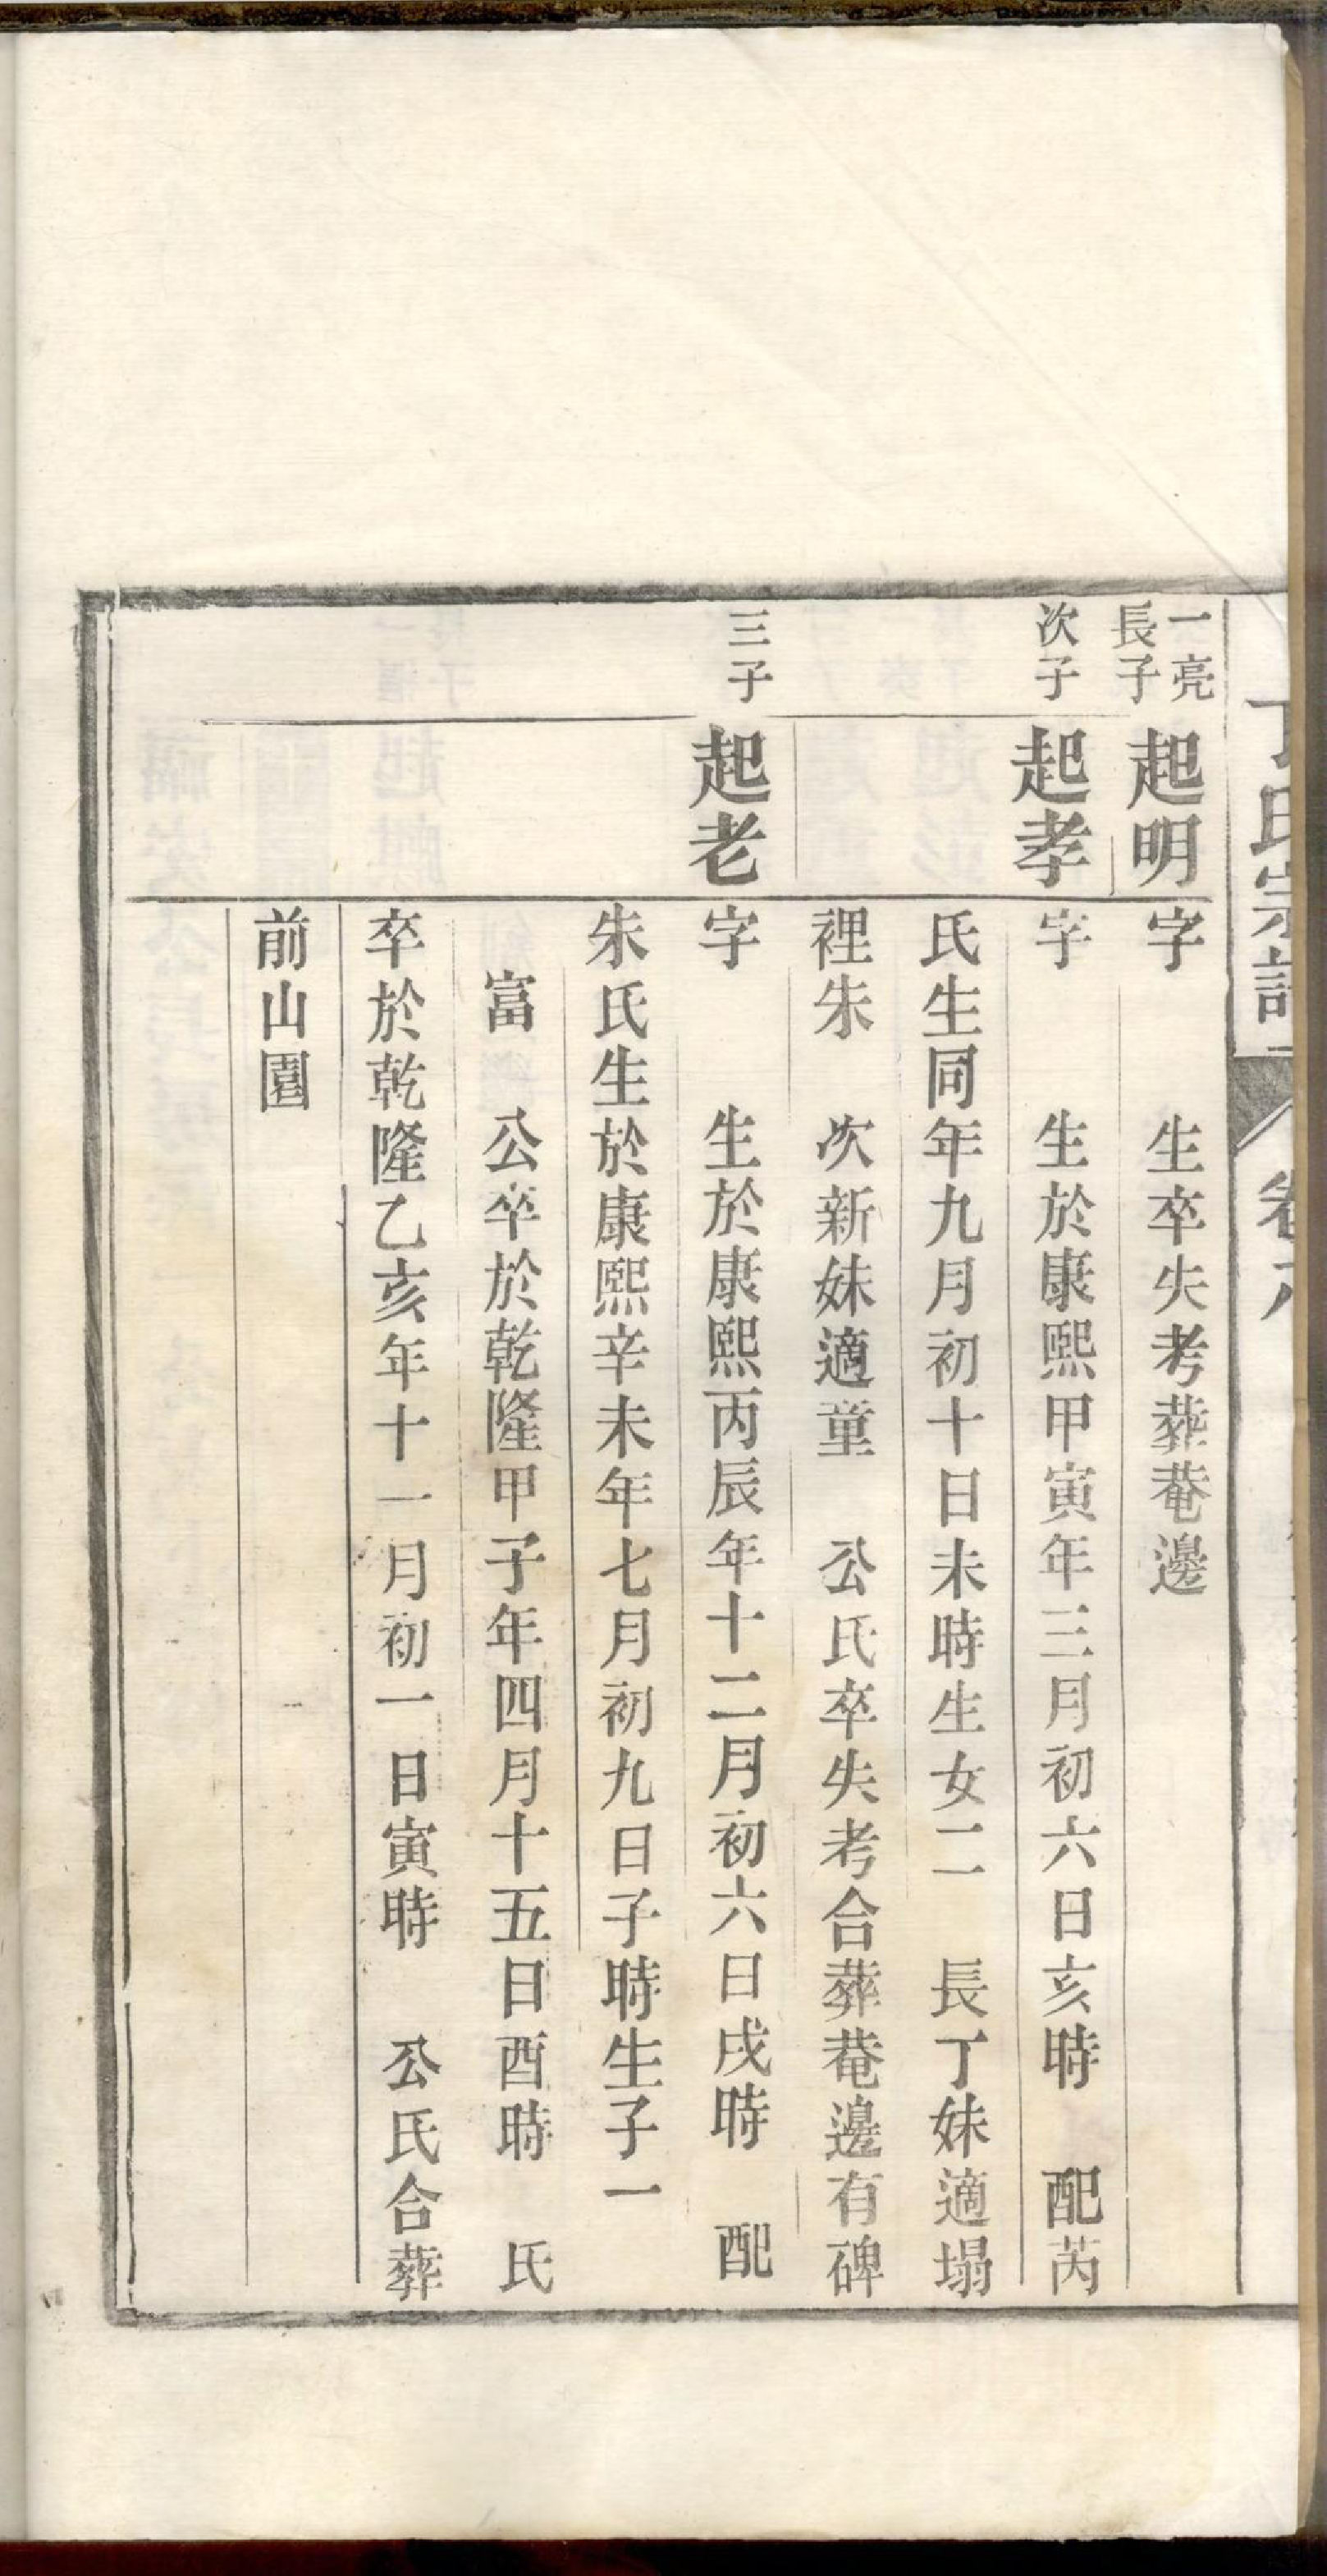 丁氏宗譜 卷八
一亮
長子
起明
字 生卒失考葬菴邊
次子
起孝
字 生於康熙甲寅年三月初六日亥時 配芮
氏生同年九月初十日未時生女二 長丁妹適塌
裡朱 次新妹適童 公氏卒失考合葬菴邊有碑
三子
起老
字 生於康熙丙辰年十二月初六日戌時 配
朱氏生於康熙辛未年七月初九日子時生子一
富 公卒於乾隆甲子年四月十五日酉時 氏
卒於乾隆乙亥年十一月初一日寅時 公氏合葬
前山園